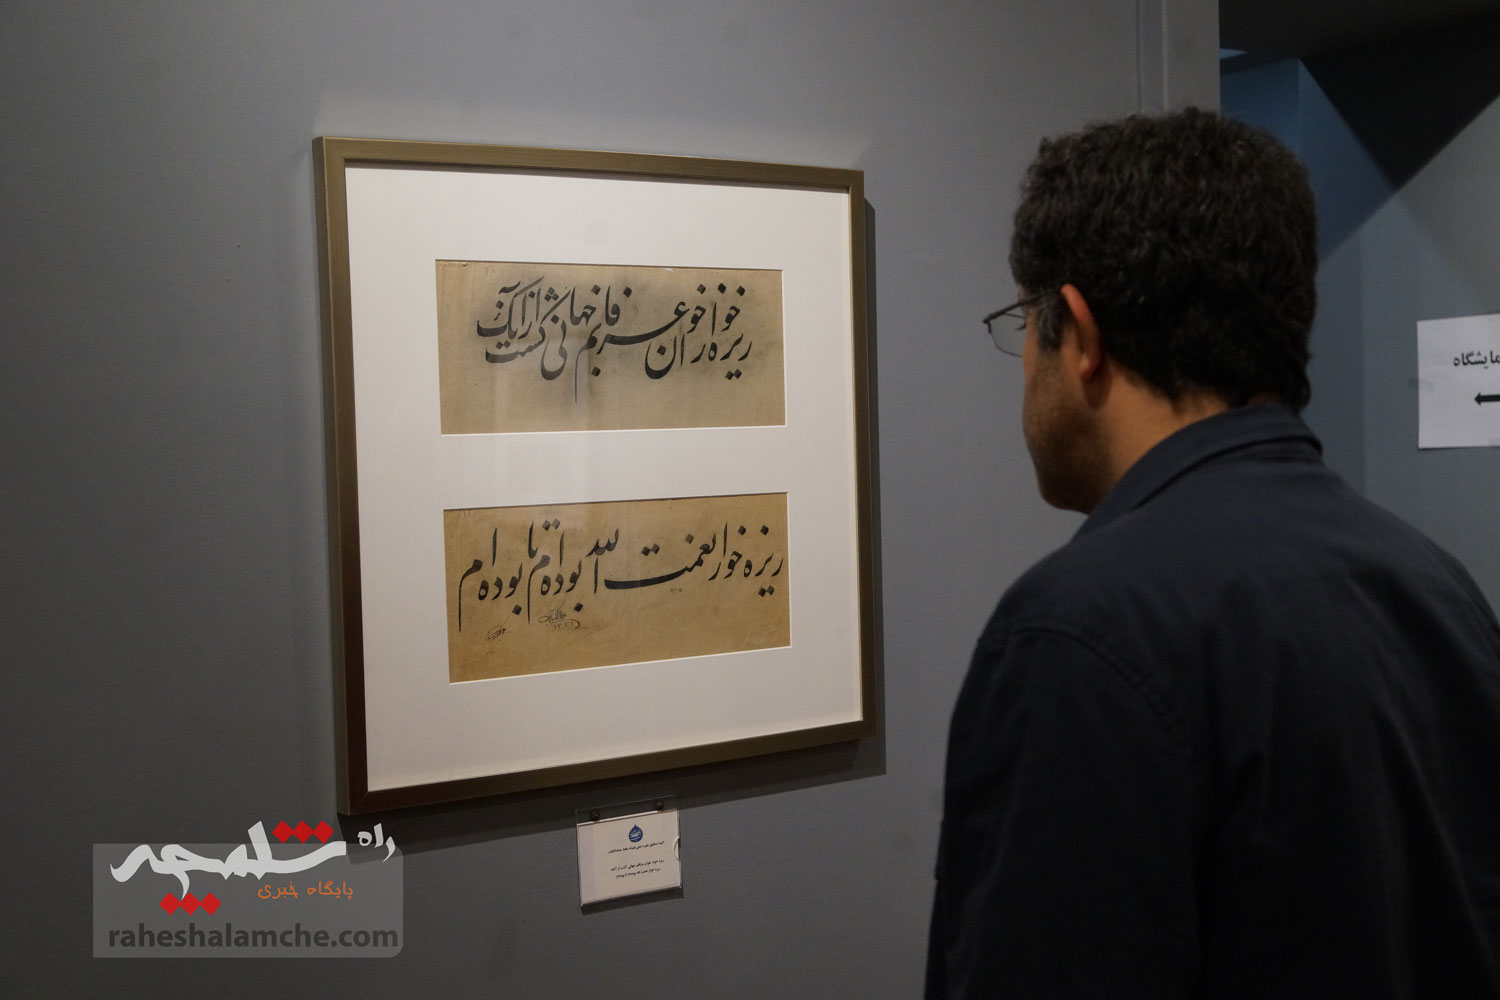 ریزه خوار خوان عرفانم جهانی گشت از آنک
ریزه خوار نعمت الله بوده ام تا بوده ام
ریزه خوار خوان عرفانم جهانی گشت از آنک
ریزه خوار نعمت الله بوده‌ام تا بوده‌ام
مایشگاه
راه شلمچه
پایگاه خبری
raheshalamche.com